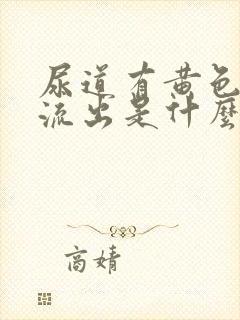 尿道有黄色
流出是什麼
商婧